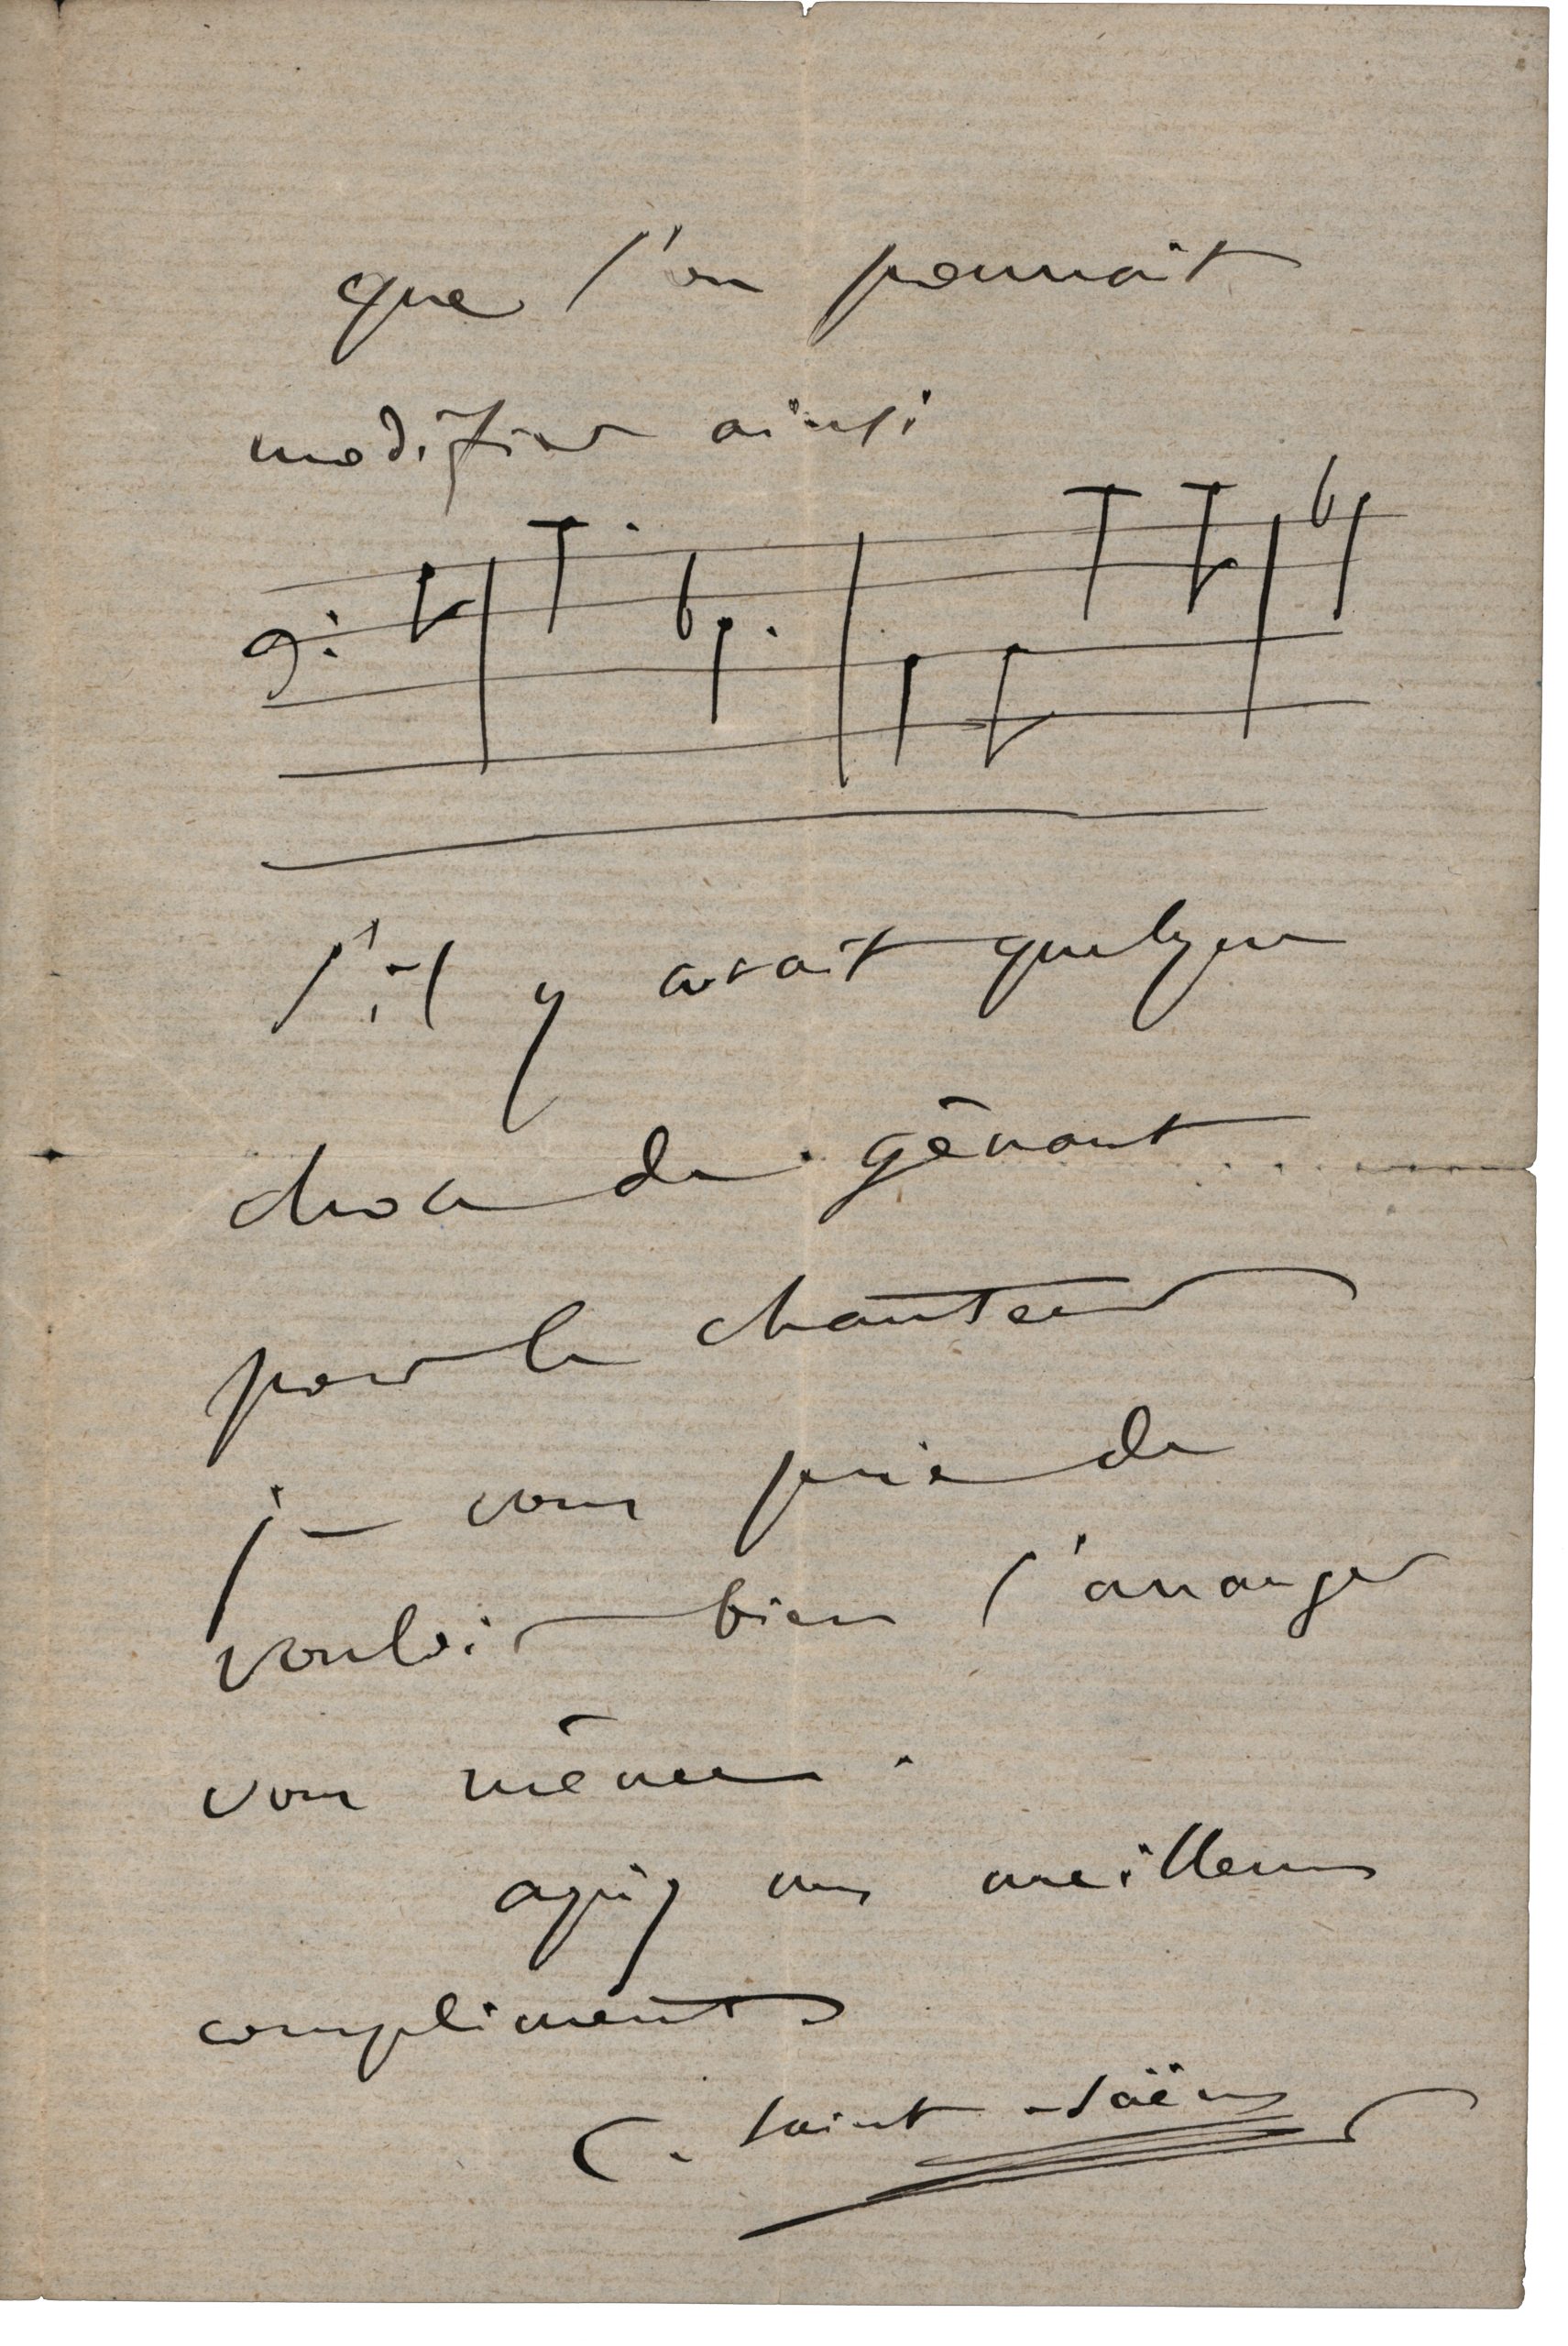 que l'on pourrait
modifier ainsi
s'il y avait quelque
chose de gênant
pour le chanteur
je vous prie de
vouloir bien l'arranger
vous même.
agréez mes meilleurs
compliments
C. Saint-Saëns